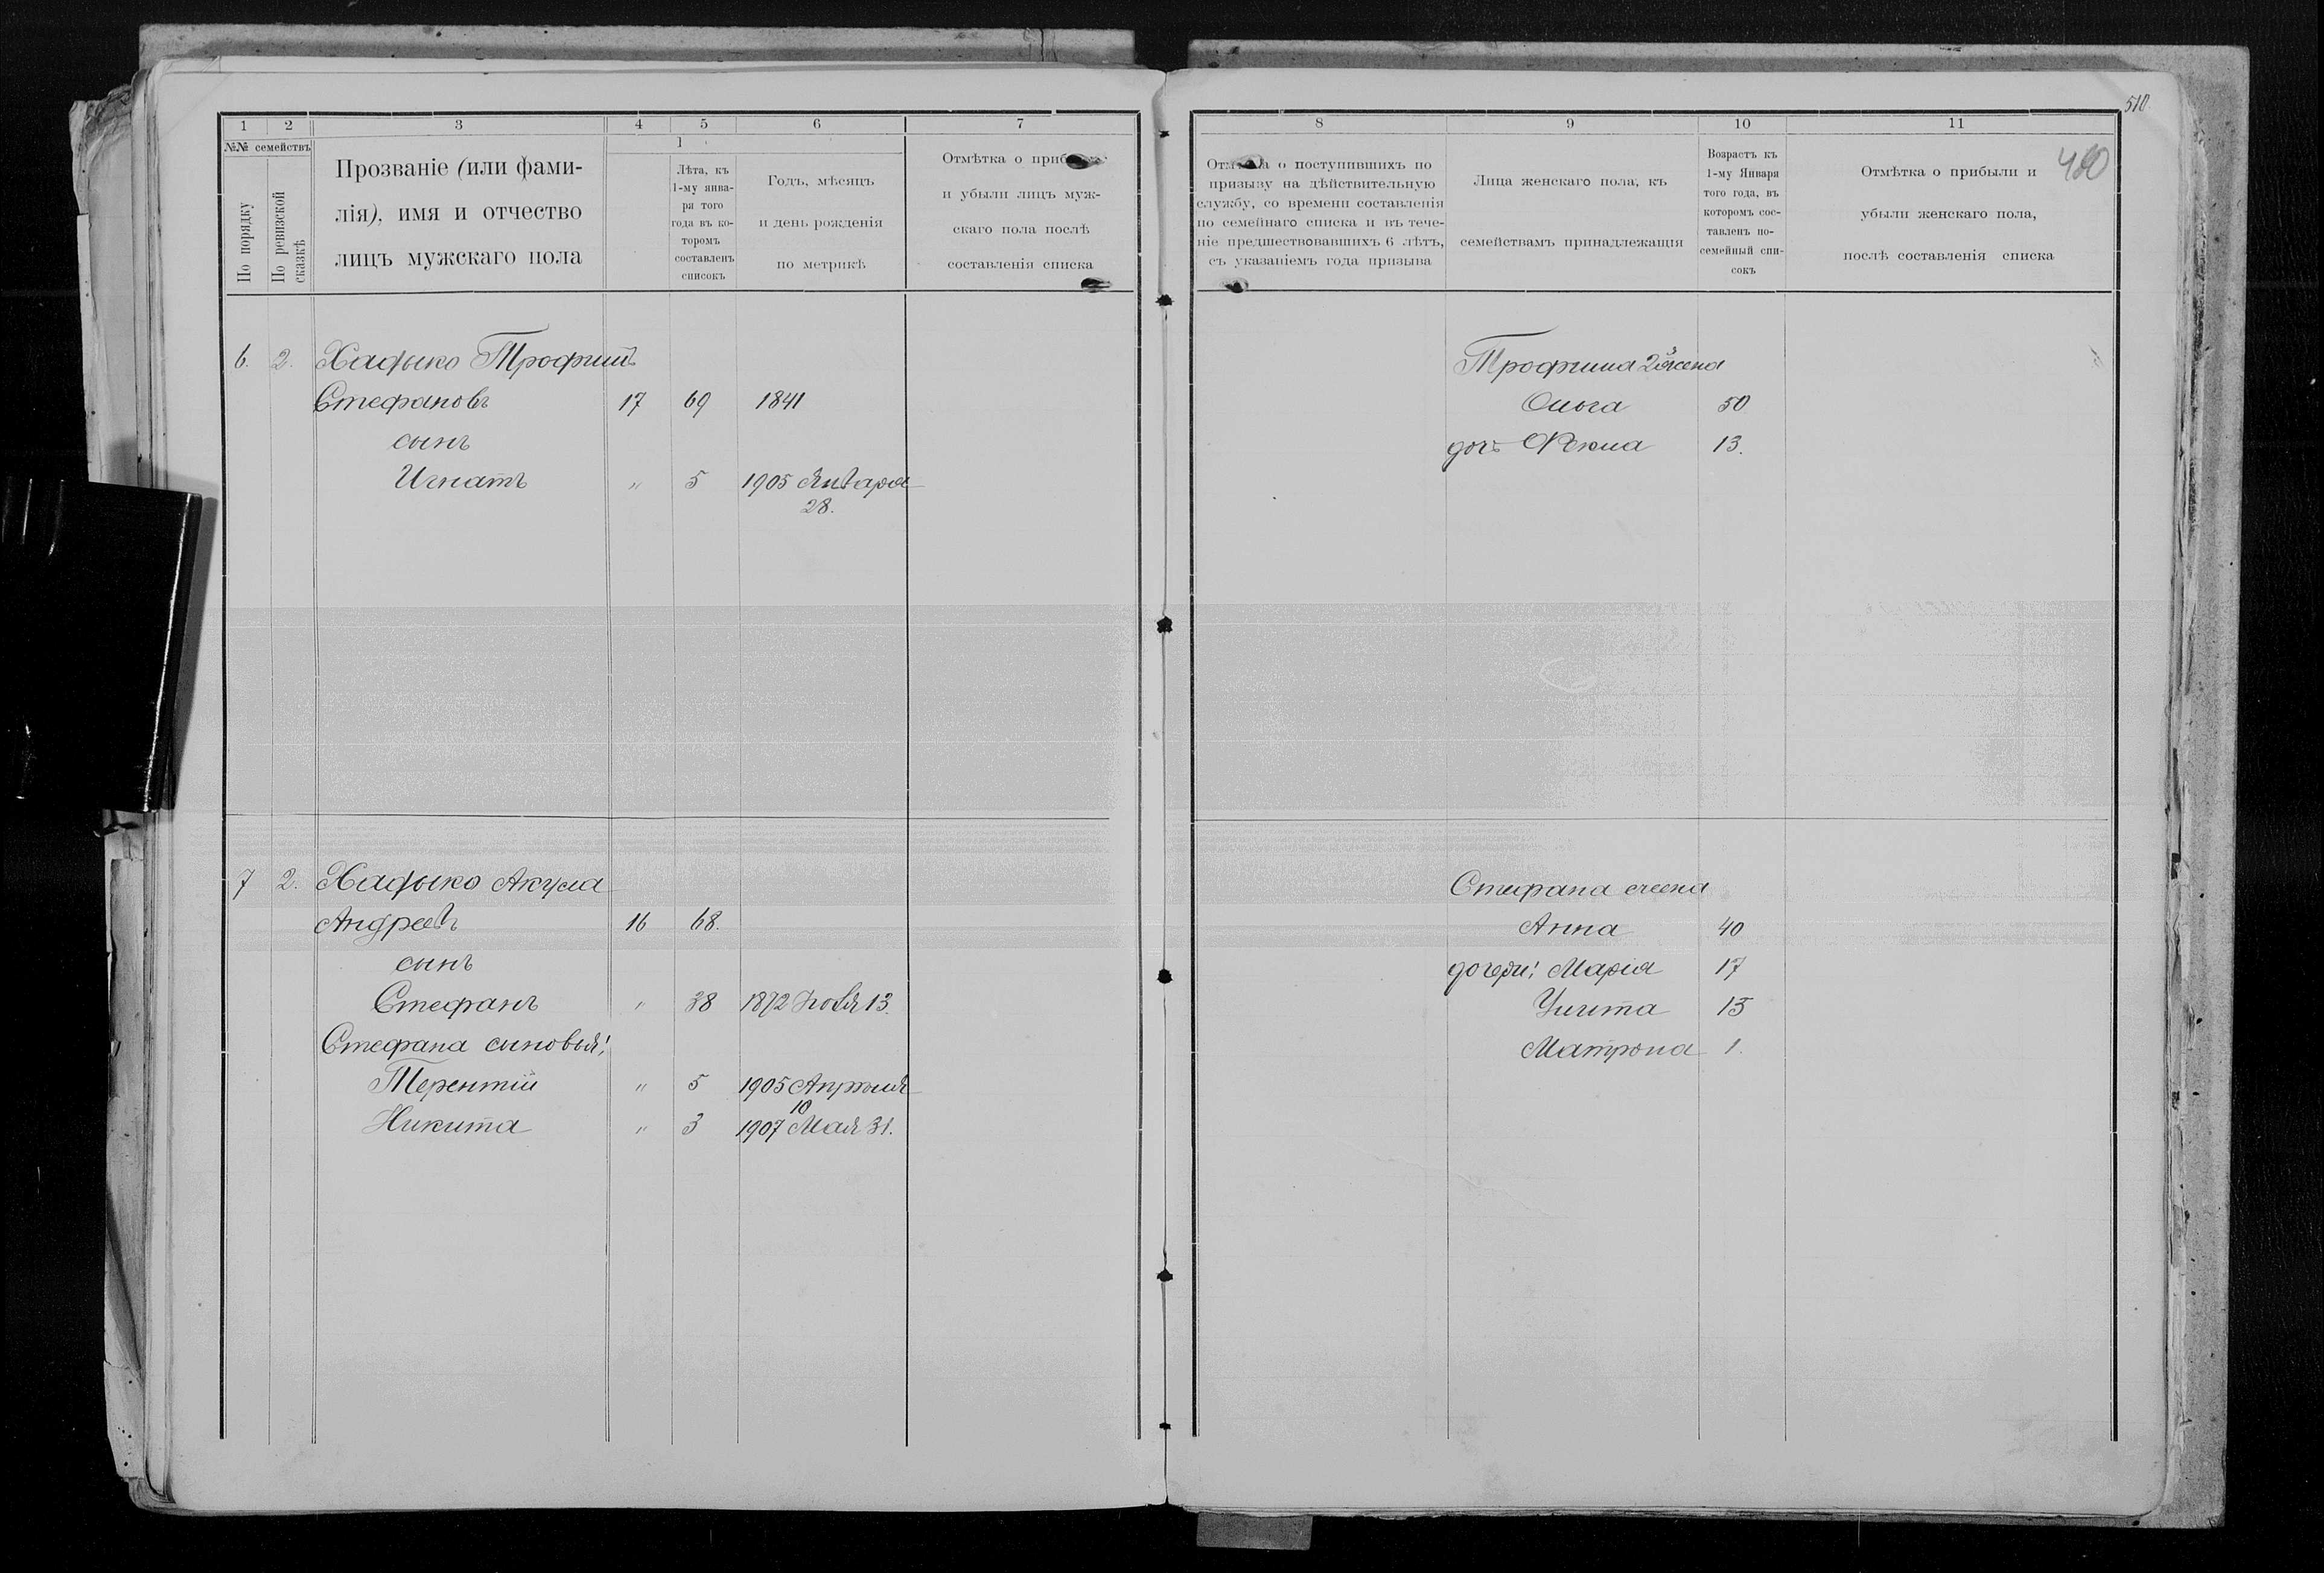 510
480
1 2 3 4 5 6 7
№№ семействъ
По порядку
По ревизской сказкѣ
Прозваніе (или фами-
лія), имя и отчество
лицъ мужскаго пола
1
Лѣта, къ
1-му янва-
ря того
года въ ко-
торомъ
составленъ
списокъ
Годъ, мѣсяцъ
и день рожденія
по метрикѣ
Отмѣтка о
и убыли лицъ муж-
скаго пола послѣ
составленія списка
6. 2. Хадыко Трофимъ
Стефановъ 17 69 1841
сынъ
Игнатъ " 5 1905 Января
28.
7 2. Хадыко Акула
Андреевъ 16 68.
сынъ
Стефанъ " 38 1872 Ноя 13.
Стефана сыновья:
Терентій " 5 1905 Апрѣля
10
Никита " 3 1907 Мая 31.
8 9 10 11
о поступившихъ по
призыву на дѣйствительную
службу, со времени составленія
по семейнаго списка и въ тече-
ніе предшествовавшихъ 6 лѣтъ,
съ указаніемъ года призыва
Лица женскаго пола, къ
семействамъ принадлежащія
Возрастъ къ
1-му Января
того года, въ
которомъ сос-
тавленъ по-
семейный спи-
сокъ
Отмѣтка о прибыли и
убыли женскаго пола,
послѣ составленія списка
Трофима 2 жена
Ольга 50
дочь Ѳекла 13.
Стефана жена
Анна 40
дочери: Марія 17
Улита 15
Матрона 1.